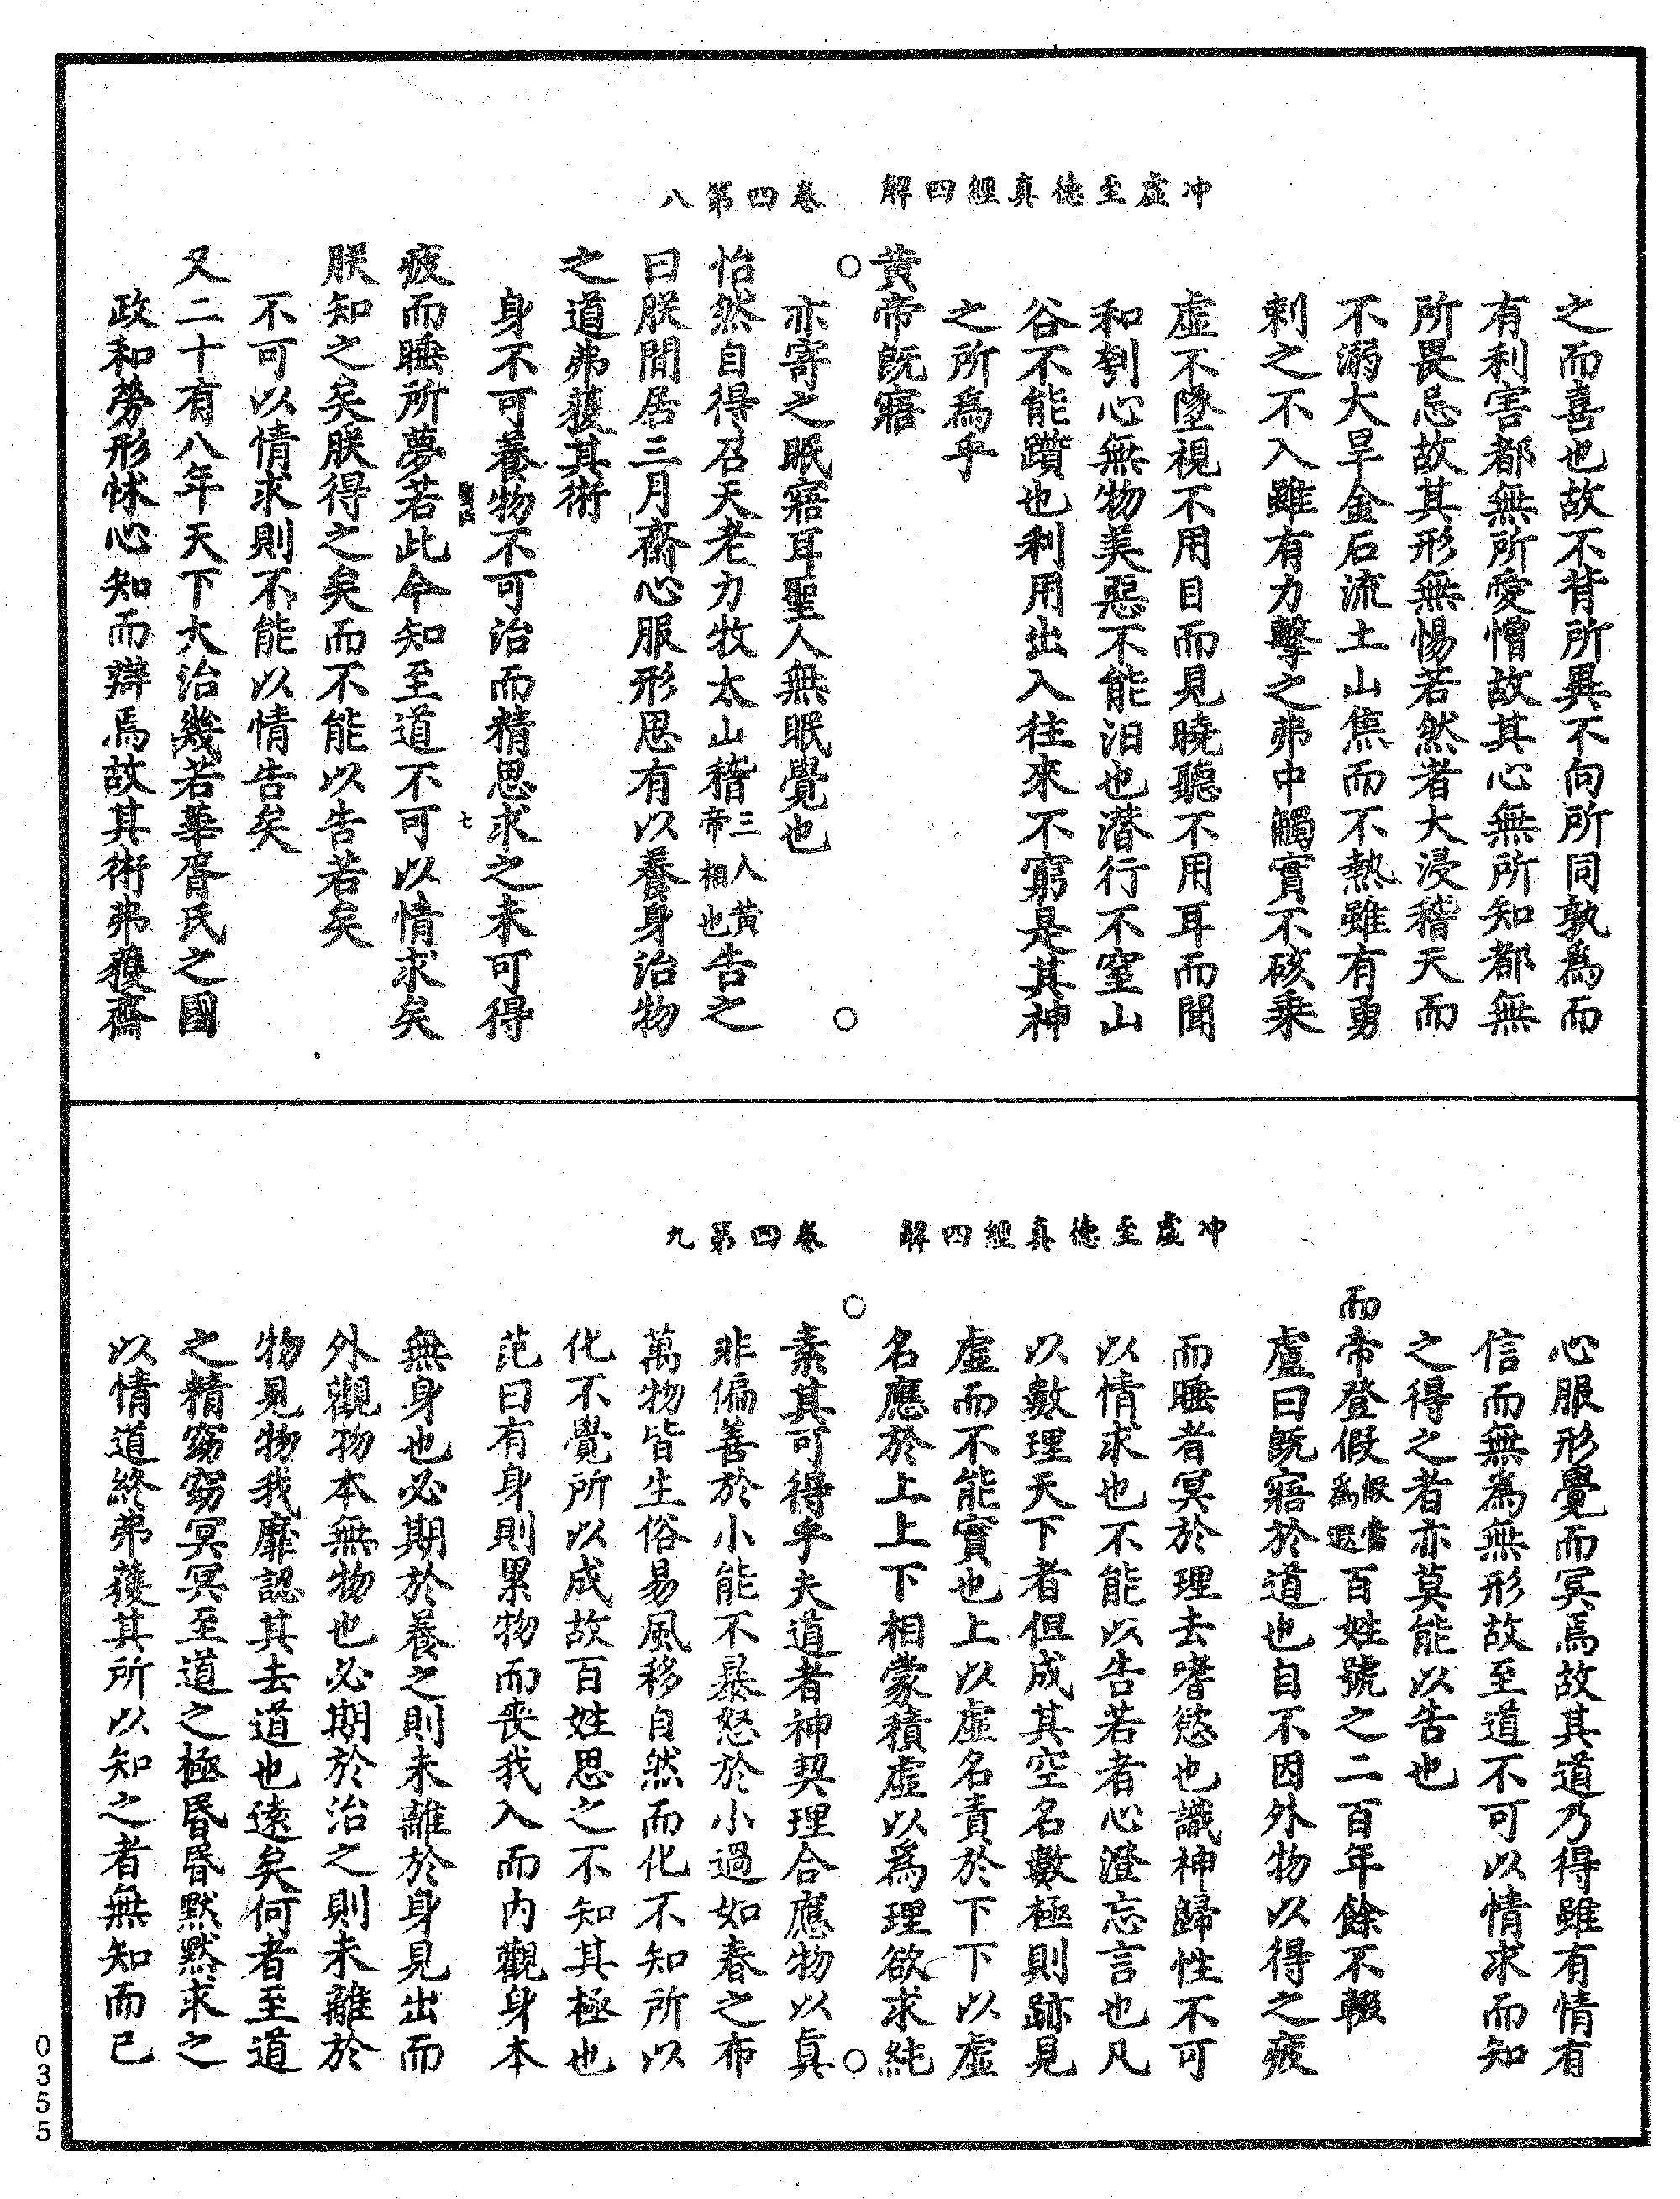 冲虛至德真經四解　卷四第八
之而喜也故不背所異不向所同孰為而
有利害都無所愛憎故其心無所知都無
所畏忌故其形無惕若然者大浸稽天而
不溺大旱金石流土山焦而不熱雖有勇
刺之不入雖有力擊之弗中觸實不硋乗
虛不墜視不用目而見曉聽不用耳而聞
和刳心無物美惡不能汨也潜行不窒山
谷不能躓也利用出入往來不窮是其神
之所為乎
黄帝既寤
亦寄之眠寤耳聖人無眠覺也
怡然自得召天老力牧太山稽三人黄帝相也告之
曰朕閒居三月齋心服形思有以養身治物
之道弗獲其術
身不可養物不可治而精思求之未可得
七
疲而睡所夢若此今知至道不可以情求矣
朕知之矣朕得之矣而不能以告若矣
不可以情求則不能以情告矣
又二十有八年天下大治幾若華胥氏之國
政和勞形怵心知而辯焉故其術弗獲齋
冲虛至德真經四解　卷四第九
心服形覺而冥焉故其道乃得雖有情有
信而無為無形故至道不可以情求而知
之得之者亦莫能以告也
而帝登假假當為遐百姓號之二百年餘不輟
盧曰既寤於道也自不因外物以得之疲
而睡者冥於理去嗜慾也識神歸性不可
以情求也不能以告若者心澄忘言也凡
以數理天下者但成其空名數極則跡見
虛而不能實也上以虛名責於下下以虛
名應於上上下相蒙積虛以為理欲求純
素其可得乎夫道者神契理合應物以真
非偏善於小能不暴怒於小過如春之布
萬物皆生俗易風移自然而化不知所以
化不覺所以成故百姓思之不知其極也
范曰有身則累物而喪我入而内觀身本
無身也必期於養之則未離於身見出而
外觀物本無物也必期於治之則未離於
物見物我靡認其去道也遠矣何者至道
之精窈窈冥冥至道之極昏昏默默求之
以情道終弗獲其所以知之者無知而已
0355